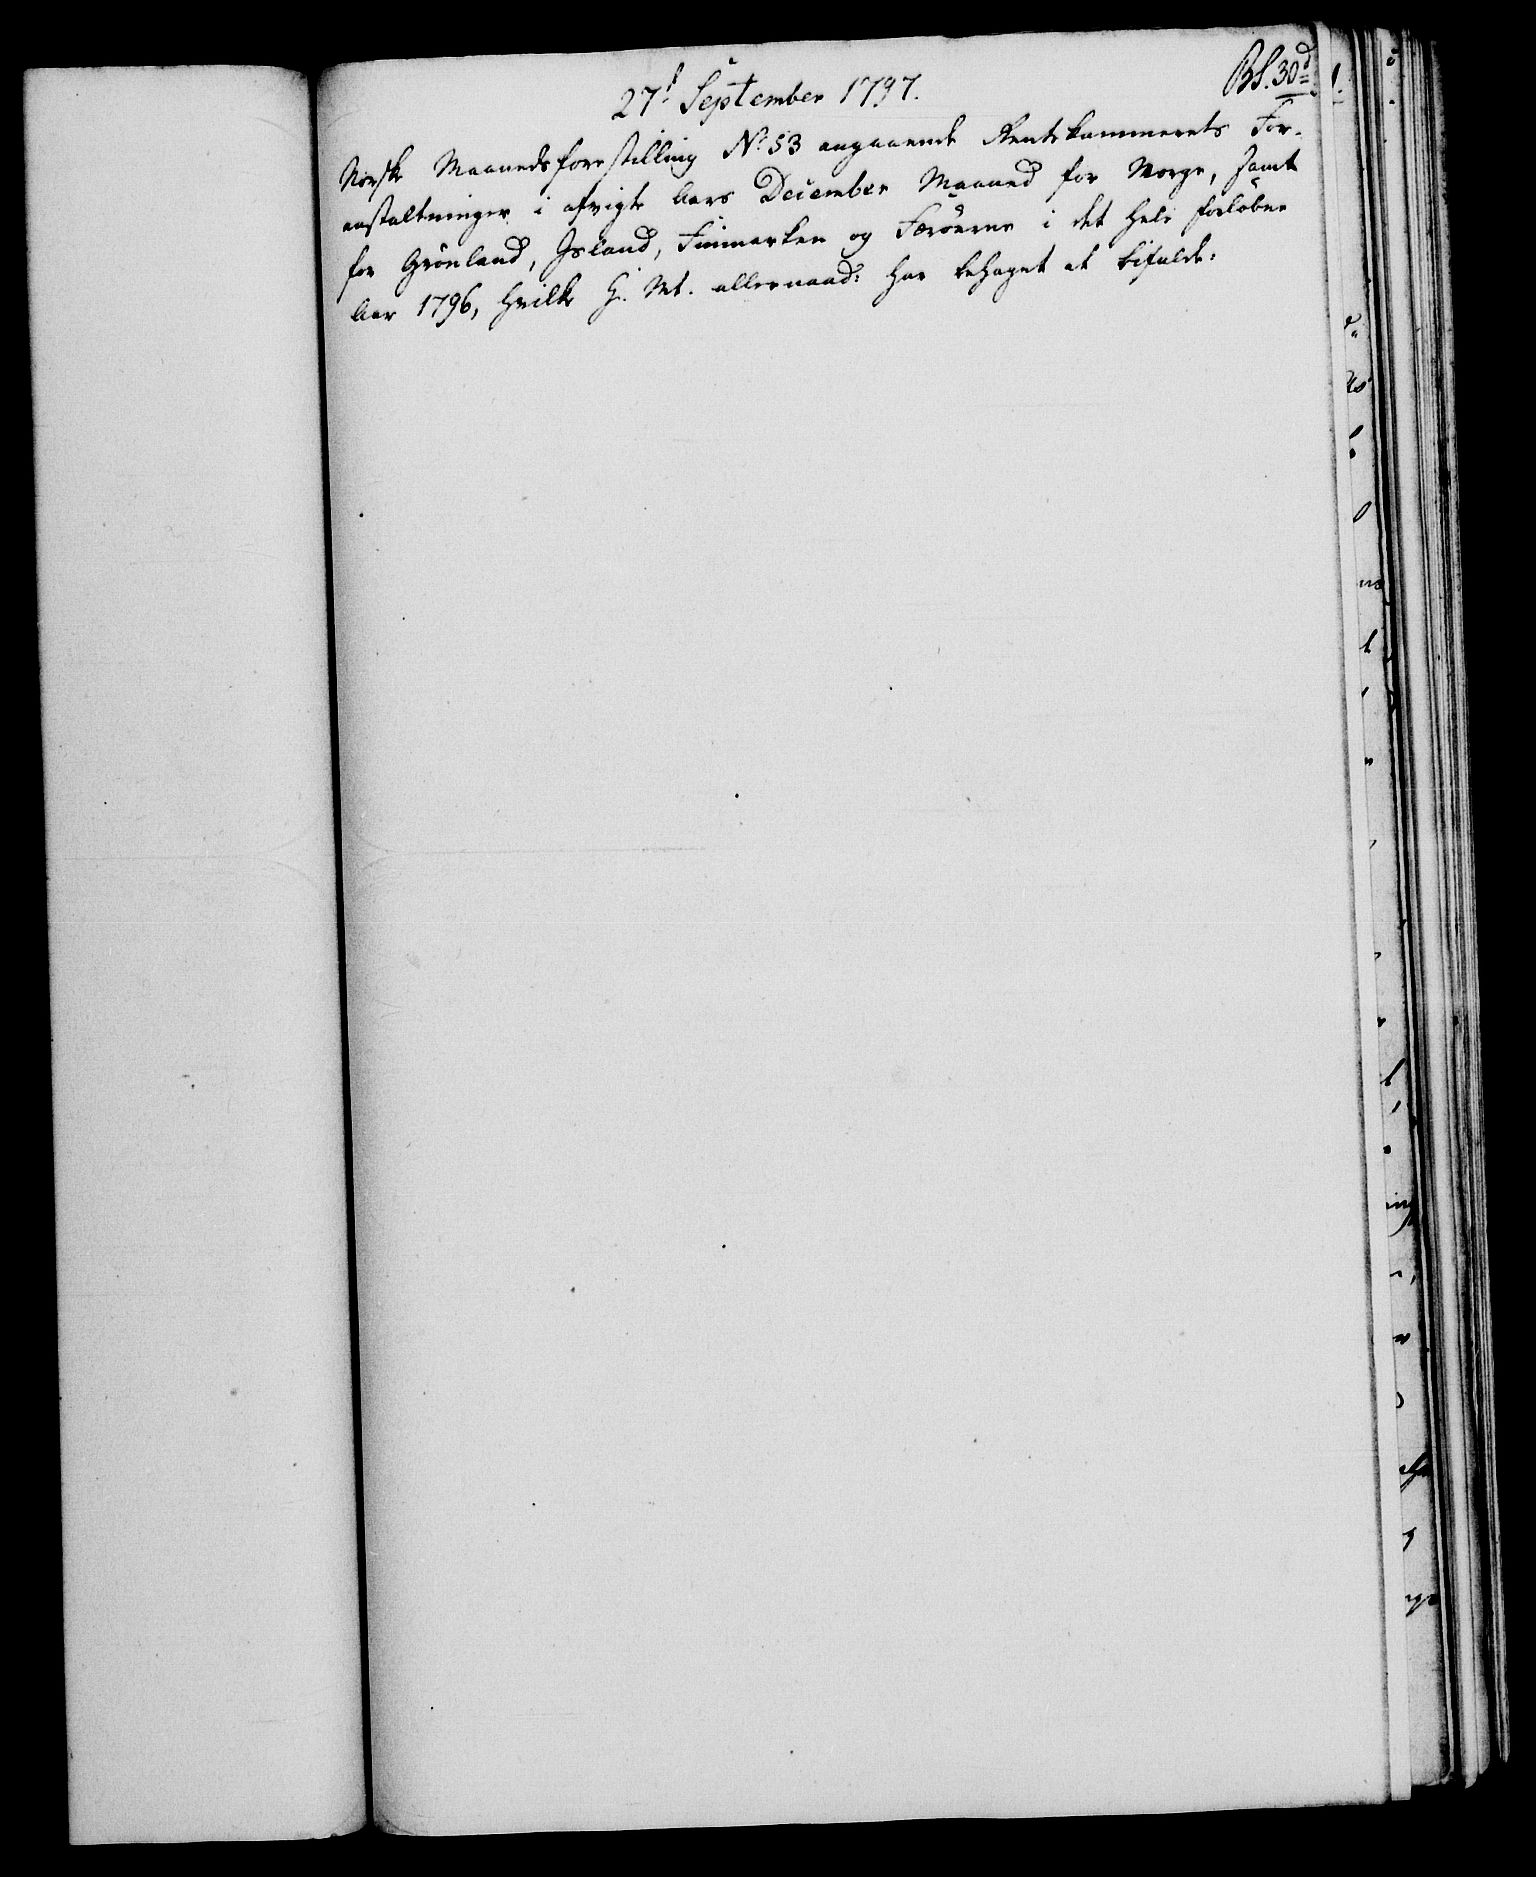 Bl. 30d
27de September 1797.
Norske Maanedsforestilling No 53 angaaende Rentekammerets For-
anstaltninger i afvigte Aars December Maaned for Norge, samt
for Grönland, Island, Finmarken og Færöerne i det hele forløbne
Aar 1796, hvilke H. Mt. allernaad: har behaget at bifalde: